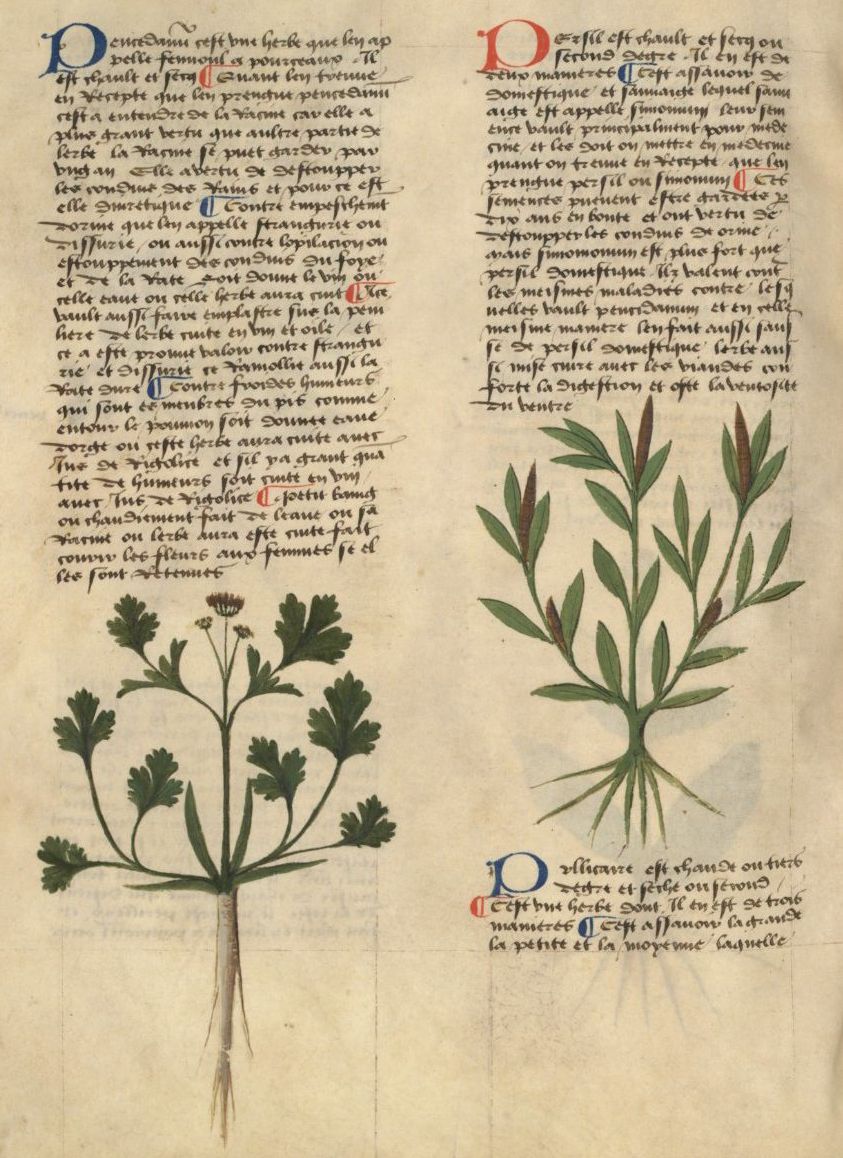 Peucedanum cest vne herbe que len ap
pelle fennoul a pourceaux . Il
est chault et secq Quant len treuue
en Recepte que len prengne peucedanum
cest a entendre de la Racine car elle a
plus grant vertu que aultre partie de
lerbe la Racine se puet garder par
vng an Elle a vertu de destoupper
les conduis des Rains et pour ce est
elle diuretique Contre empeschement
dorine que len appelle strangurie ou
dissurie , ou aussi contre lopilacion ou
estouppement des conduis du foye
et de la Rate soit donne le vin ou
celle eaue ou celle herbe aura cuit Ace
vault aussi faire emplastre sur la peni
liere de lerbe cuite en vin et oile , et
ce a este prouue valoir contre strangu
rie et dissurie ce Ramollie aussi la
Rate dure Contre froides humeurs
qui sont es menbres du pis comme
entour le poumon soit donnee eaue
dorge ou ceste herbe aura cuite auec
Jus de Rigolice et sil y a grant qua
tite de humeurs soit cuite en vin
auec Jus de Rigolice petit baing
ou chaudiement fait de leaue ou sa
Racine ou lerbe aura este cuite fait
courir les fleurs aux femmes se el
les sont Retenues
Persil est chault et secq ou
second degre . Il en est de
deux manieres Cest assauoir de
domestique et sauuaige lequel sauu
aige est appelle sinonium leur sem
ence vault principalment pour mede
cine , et les doit on mettre en medecine
quant on treuue en Recepte que len
prengne persil ou sinonium Ces
semences pueuent estre gardees p
dix ans en bonte et ont vertu de
destoupper les conduis de orine .
mais sinonomum est plus fort que
persil domestique . Ilz valent cont
les meismes maladies contre lesq
uelles vault peucedanum et en celle
meisme maniere len fait aussi saus
se de persil domestique lerbe aus
si mise cuire auec les viandes con
forte la digestion et oste la ventosite
du ventre
Pullicaire est chaude ou tiers
degre et seche ou second
Cest vne herbe dont Il en est de trois
manieres Cest assauoir la grande
la petite et la moyenne laquelle